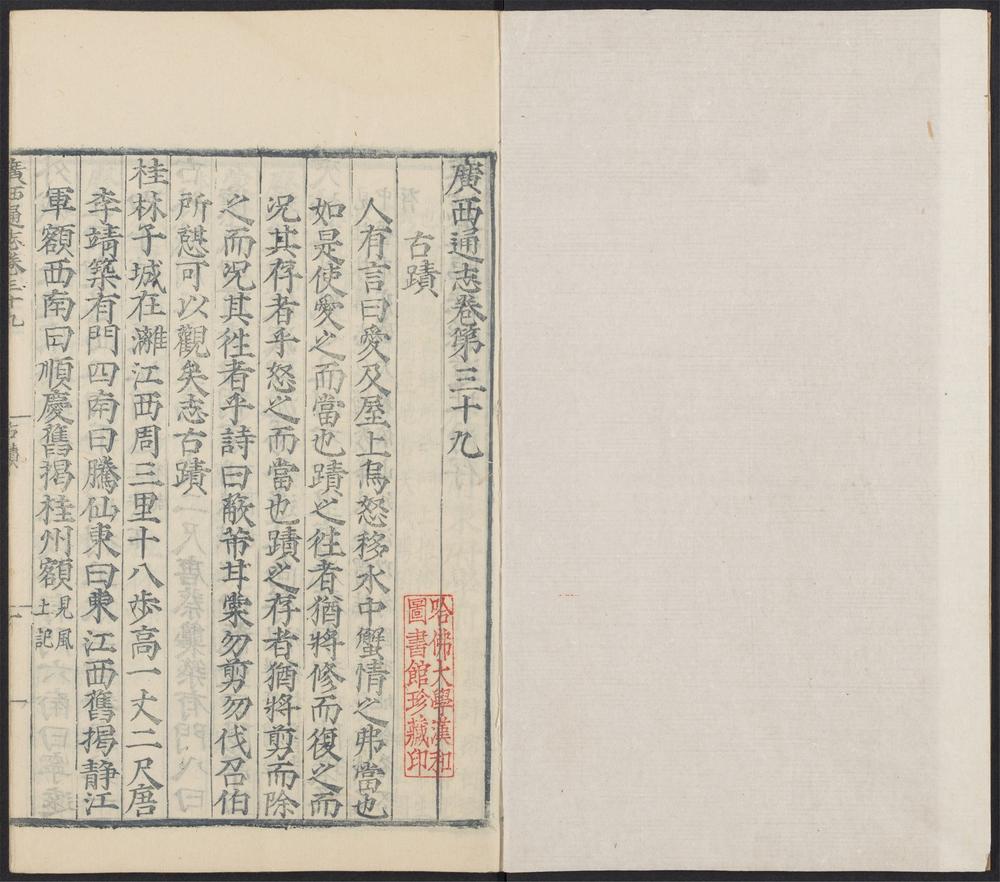 廣西通志卷第三十九
古蹟
人有言曰愛及屋上烏怒移水中蟹情之弗當也
如是使愛之而當也蹟之徃者猶將修而復之而
况其存者乎怒之而當也蹟之存者猶將剪而除
之而况其徃者乎詩曰蔽芾甘棠勿剪勿伐召伯
所憩可以觀矣志古蹟
桂林子城在灕江西周三里十八歩髙一丈二尺唐
李靖築有門四南曰騰仙東曰東江西舊揭静江
軍額西南曰順慶舊揭桂州額見風土記
廣西通志卷三十九
古蹟
一
哈佛大學漢和
圖書館珍藏印